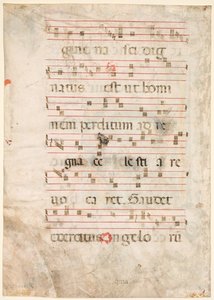 gine nasci dig
natus est ut homi
nem perditum ad re
gna ce lesti a re
uo ca ret. Gaudet
exercitus angelo rū